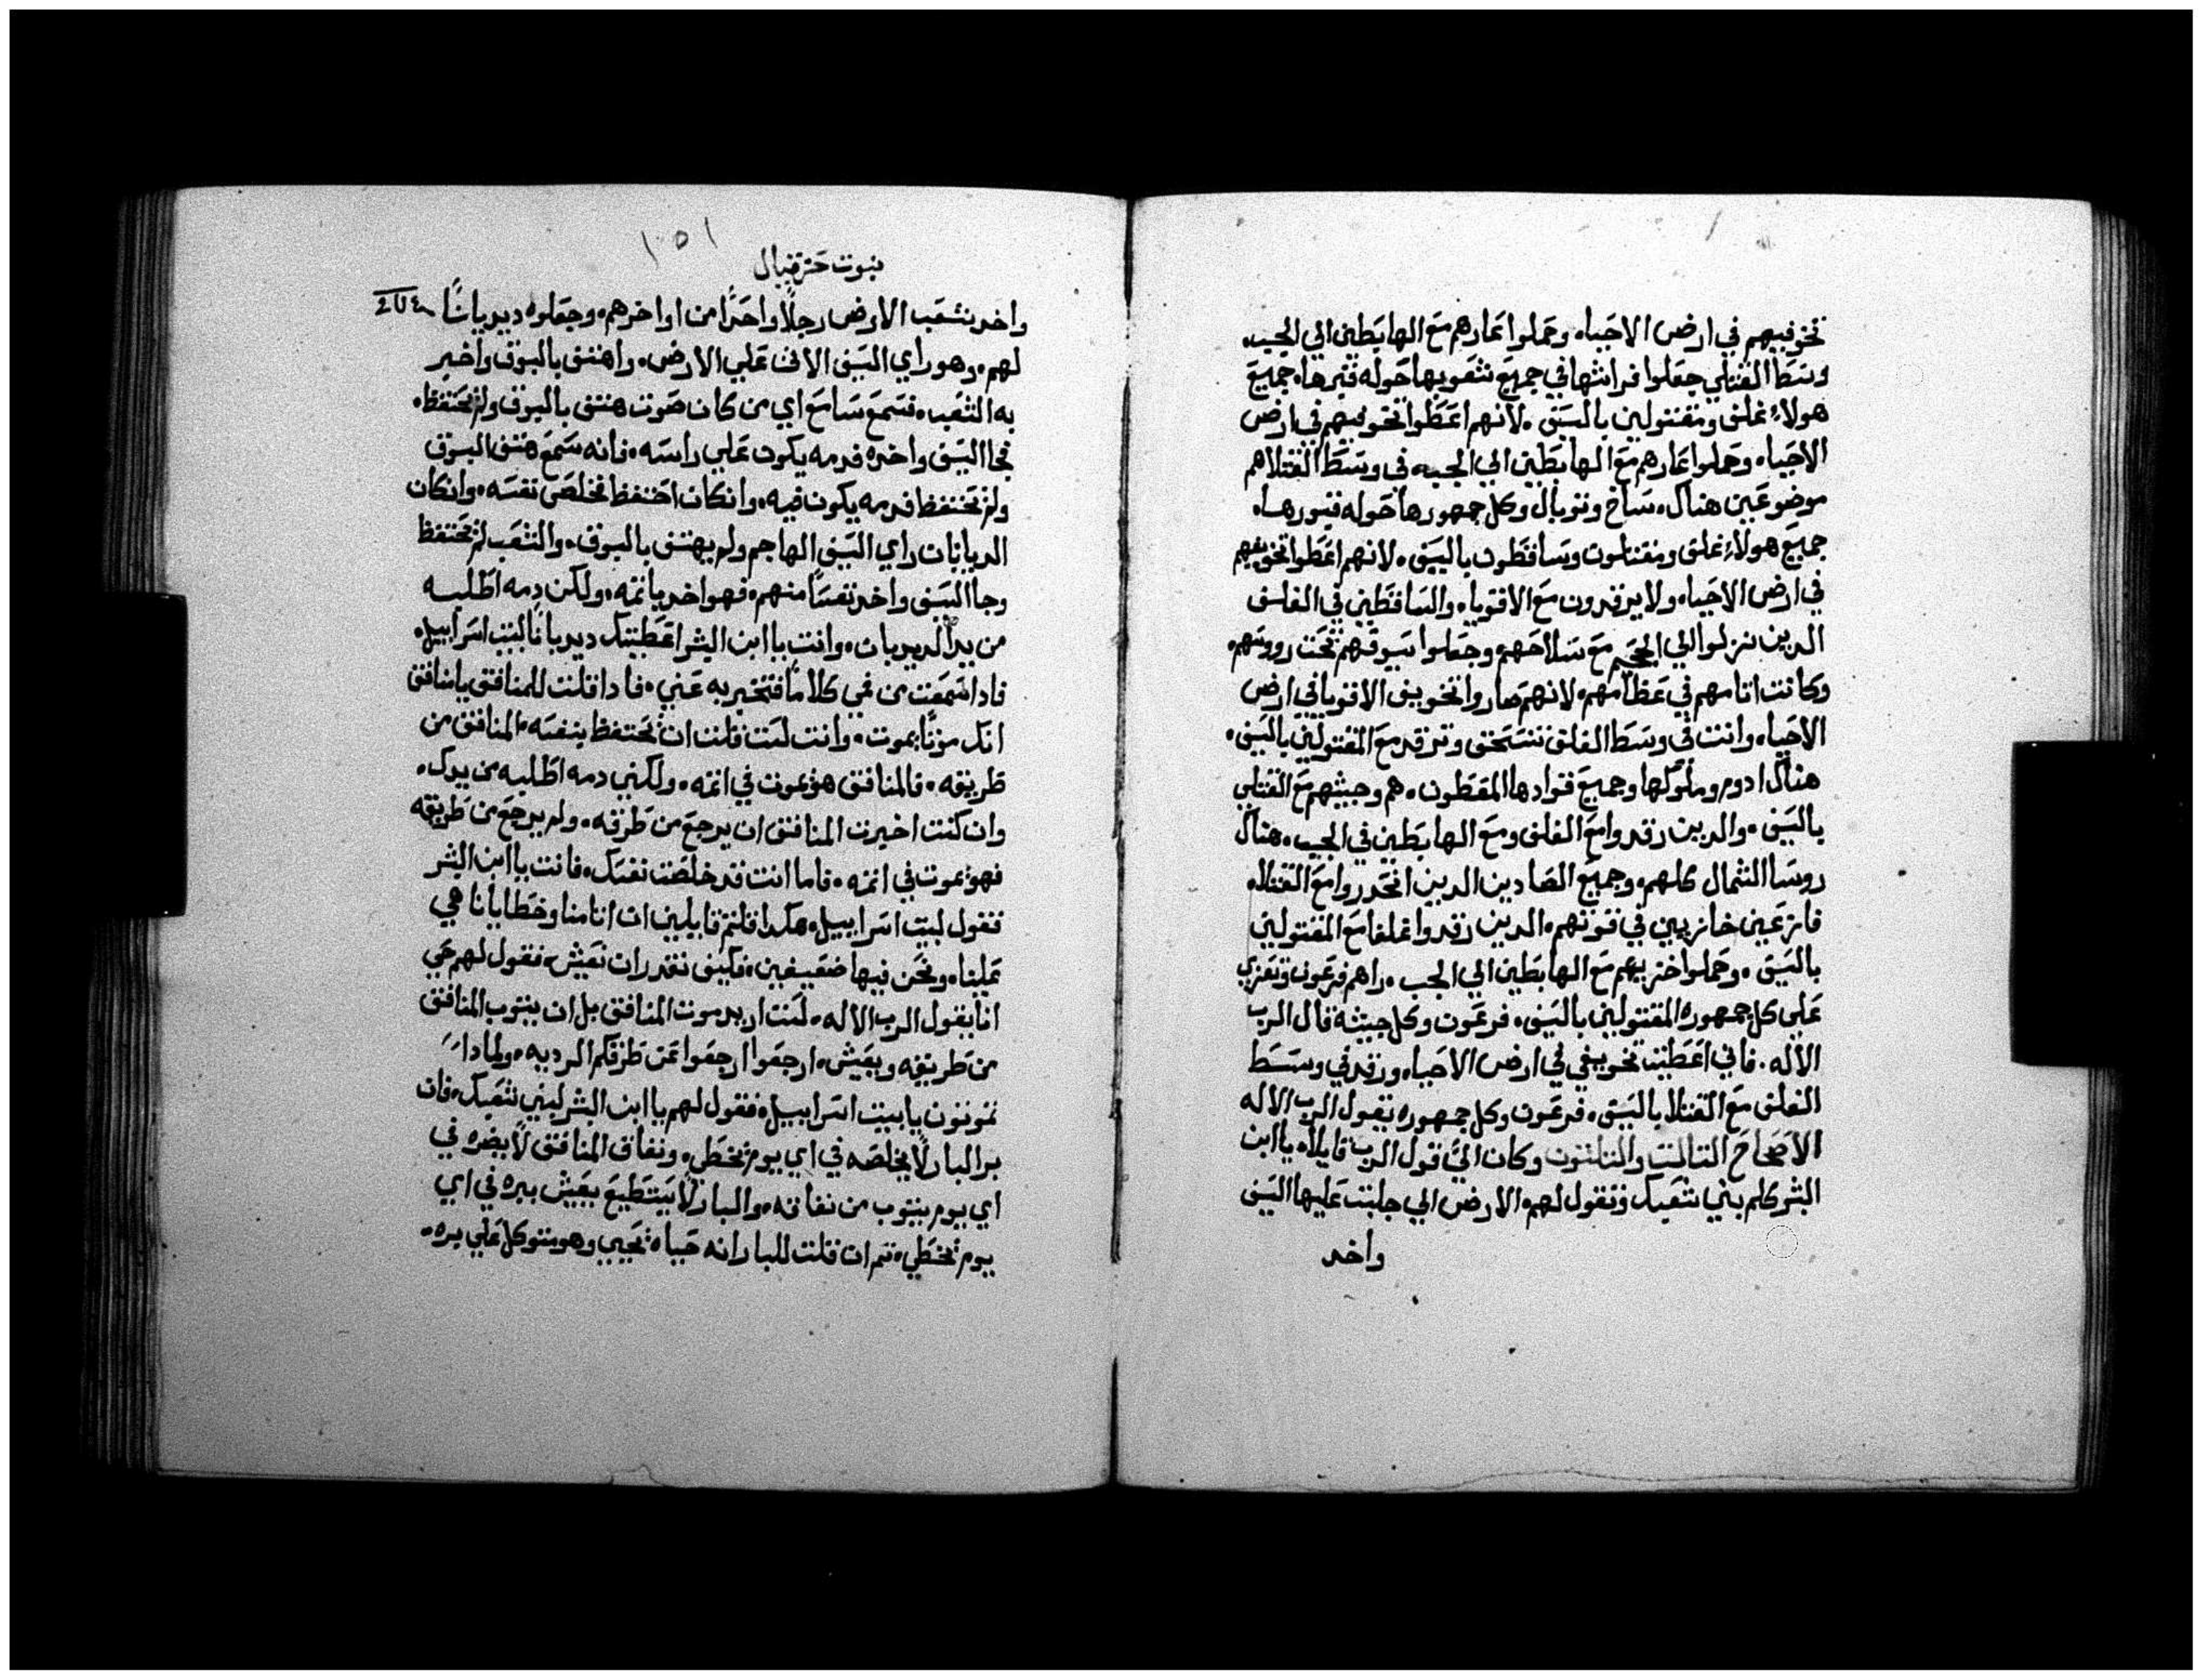 تخوفيهم في ارض الاحياء وحملوا عارهم مع الهابطين الي الجب.
وسط القتلي جعلوا فراشها في جميع شعوبها حوله قبرها. جميع
هولاء غلف ومقتولين بالسيف. لانهم اعطوا تخوفيهم في ارض
الاحياء وحملوا عارهم مع الهابطين الي الجب. في وسط القتلا هم
موضوعين هناك. ماساخ وتوبال وكل جمهورها حوله قبورها.
جميع هولاء غلف ومقتلون وساقطون بالسيف. لانهم اعطوا تخويفهم
في ارض الاحياء ولا يرقدون مع الاقوياء والساقطين في الغلف
الدين نزلوا الي الجحيم مع سلاحهم وجعلوا سيوفهم تحت رووسهم.
وكانت اتامهم في عظامهم لانهم صاروا تخويف الاقويا في ارض
الاحياء وانت في وسط الغلف تنسحق وترقد مع المقتولين بالسيف.
هناك ادوم وملوكها وجميع قوادها المقطون. هم وجيشهم مع القتلي
بالسيف. والدين رقدوا مع الغلف ومع الهابطين في الجب. هناك
روسا الشمال كلهم. وجميع الصادين الدين انحدروا مع القتلا.
فازعين خازيين في قوتهم. الدين رقدوا غلفا مع المقتولين
بالسيف. وحملوا خزيهم مع الهابطين الي الجب. راهم فرعون وتعزي
علي كل جمهوره المقتولين بالسيف. فرعون وكل جيشه قال الرب
الاله. فاني اعطيت تخويفي في ارض الاحياء ورقد في وسط
الغلف مع القتلا بالسيف. فرعون وكل جمهوره يقول الرب الاله
الاصحاح التالت والتلتون وكان الي قول الرب قايلاً. يا ابن
البشر كلم بني شعبك وتقول لهم. الارض الي جلبت عليها السيف
واخد
١٥١
نبوت حزقيال
واخد شعب الارض رجلاً واحداً من اواخرهم. وجعلوه ديدباناً
لهم. وهو راي السيف الاتى علي الارض. واهتف بالبوق واخبر
به الشعب. فسمع سامع اي من كان صوت هتف بالبوق ولم يحتفظ.
فجا السيف واخده فدمه يكون علي راسه. فانه سمع هتف البوق
ولم يحتفظ فدمه يكون فيه. وانكان احتفظ يخلص نفسه. وانكان
الديدبان راي السيف الهاجم ولم يهتف بالبوق. والشعب لم يحتفظ
وجا السيف واخد نفساً منهم. فهو اخد باتمه. ولكن دمه اطلبه
من يد الديدبان. وانت يا ابن البشر اعطيتك ديدباناً لبيت اسراييل.
فادا سمعت من فمي كلاماً فتخبر به عني. فادا قلت للمنافق يا منافق
انك موتاً يموت. وانت لست قلت ان يحتفظ بنفسه المنافق من
طريقه. فالمنافق هو يموت في اتمه. ولكني دمه اطلبه من يدك.
وان كنت اخبرت المنافق ان يرجع من طرقه. ولم يرجع من طريقه
فهو يموت في اتمه. فاما انت قد خلصت نفسك. فانت يا ابن البشر
فقول لبيت اسراييل. هكدا قلتم قايلين ان اتامنا وخطايانا هي
علينا. ونحن فيها ضعيفين. فكيف نقدر ان نعيش. فقول لهم حي
انا يقول الرب الاله. لست اريد موت المنافق بل ان يتوب المنافق
من طريقه ويعيش. ارجعوا ارجعوا عن طرقكم الرديه. ولمادا
تموتون يا بيت اسراييل. فقول لهم يا ابن البشر لبني شعبك. فان
بر البار لا يخلصه في اي يوم يخطي. ونفاق المنافق لا يضره في
اي يوم يتوب من نفاقه. والبار لا يستطيع يعيش ببره في اي
يوم يخطي. تم ان قلت للبار انه حياه يحيي وهو متوكل علي بره.